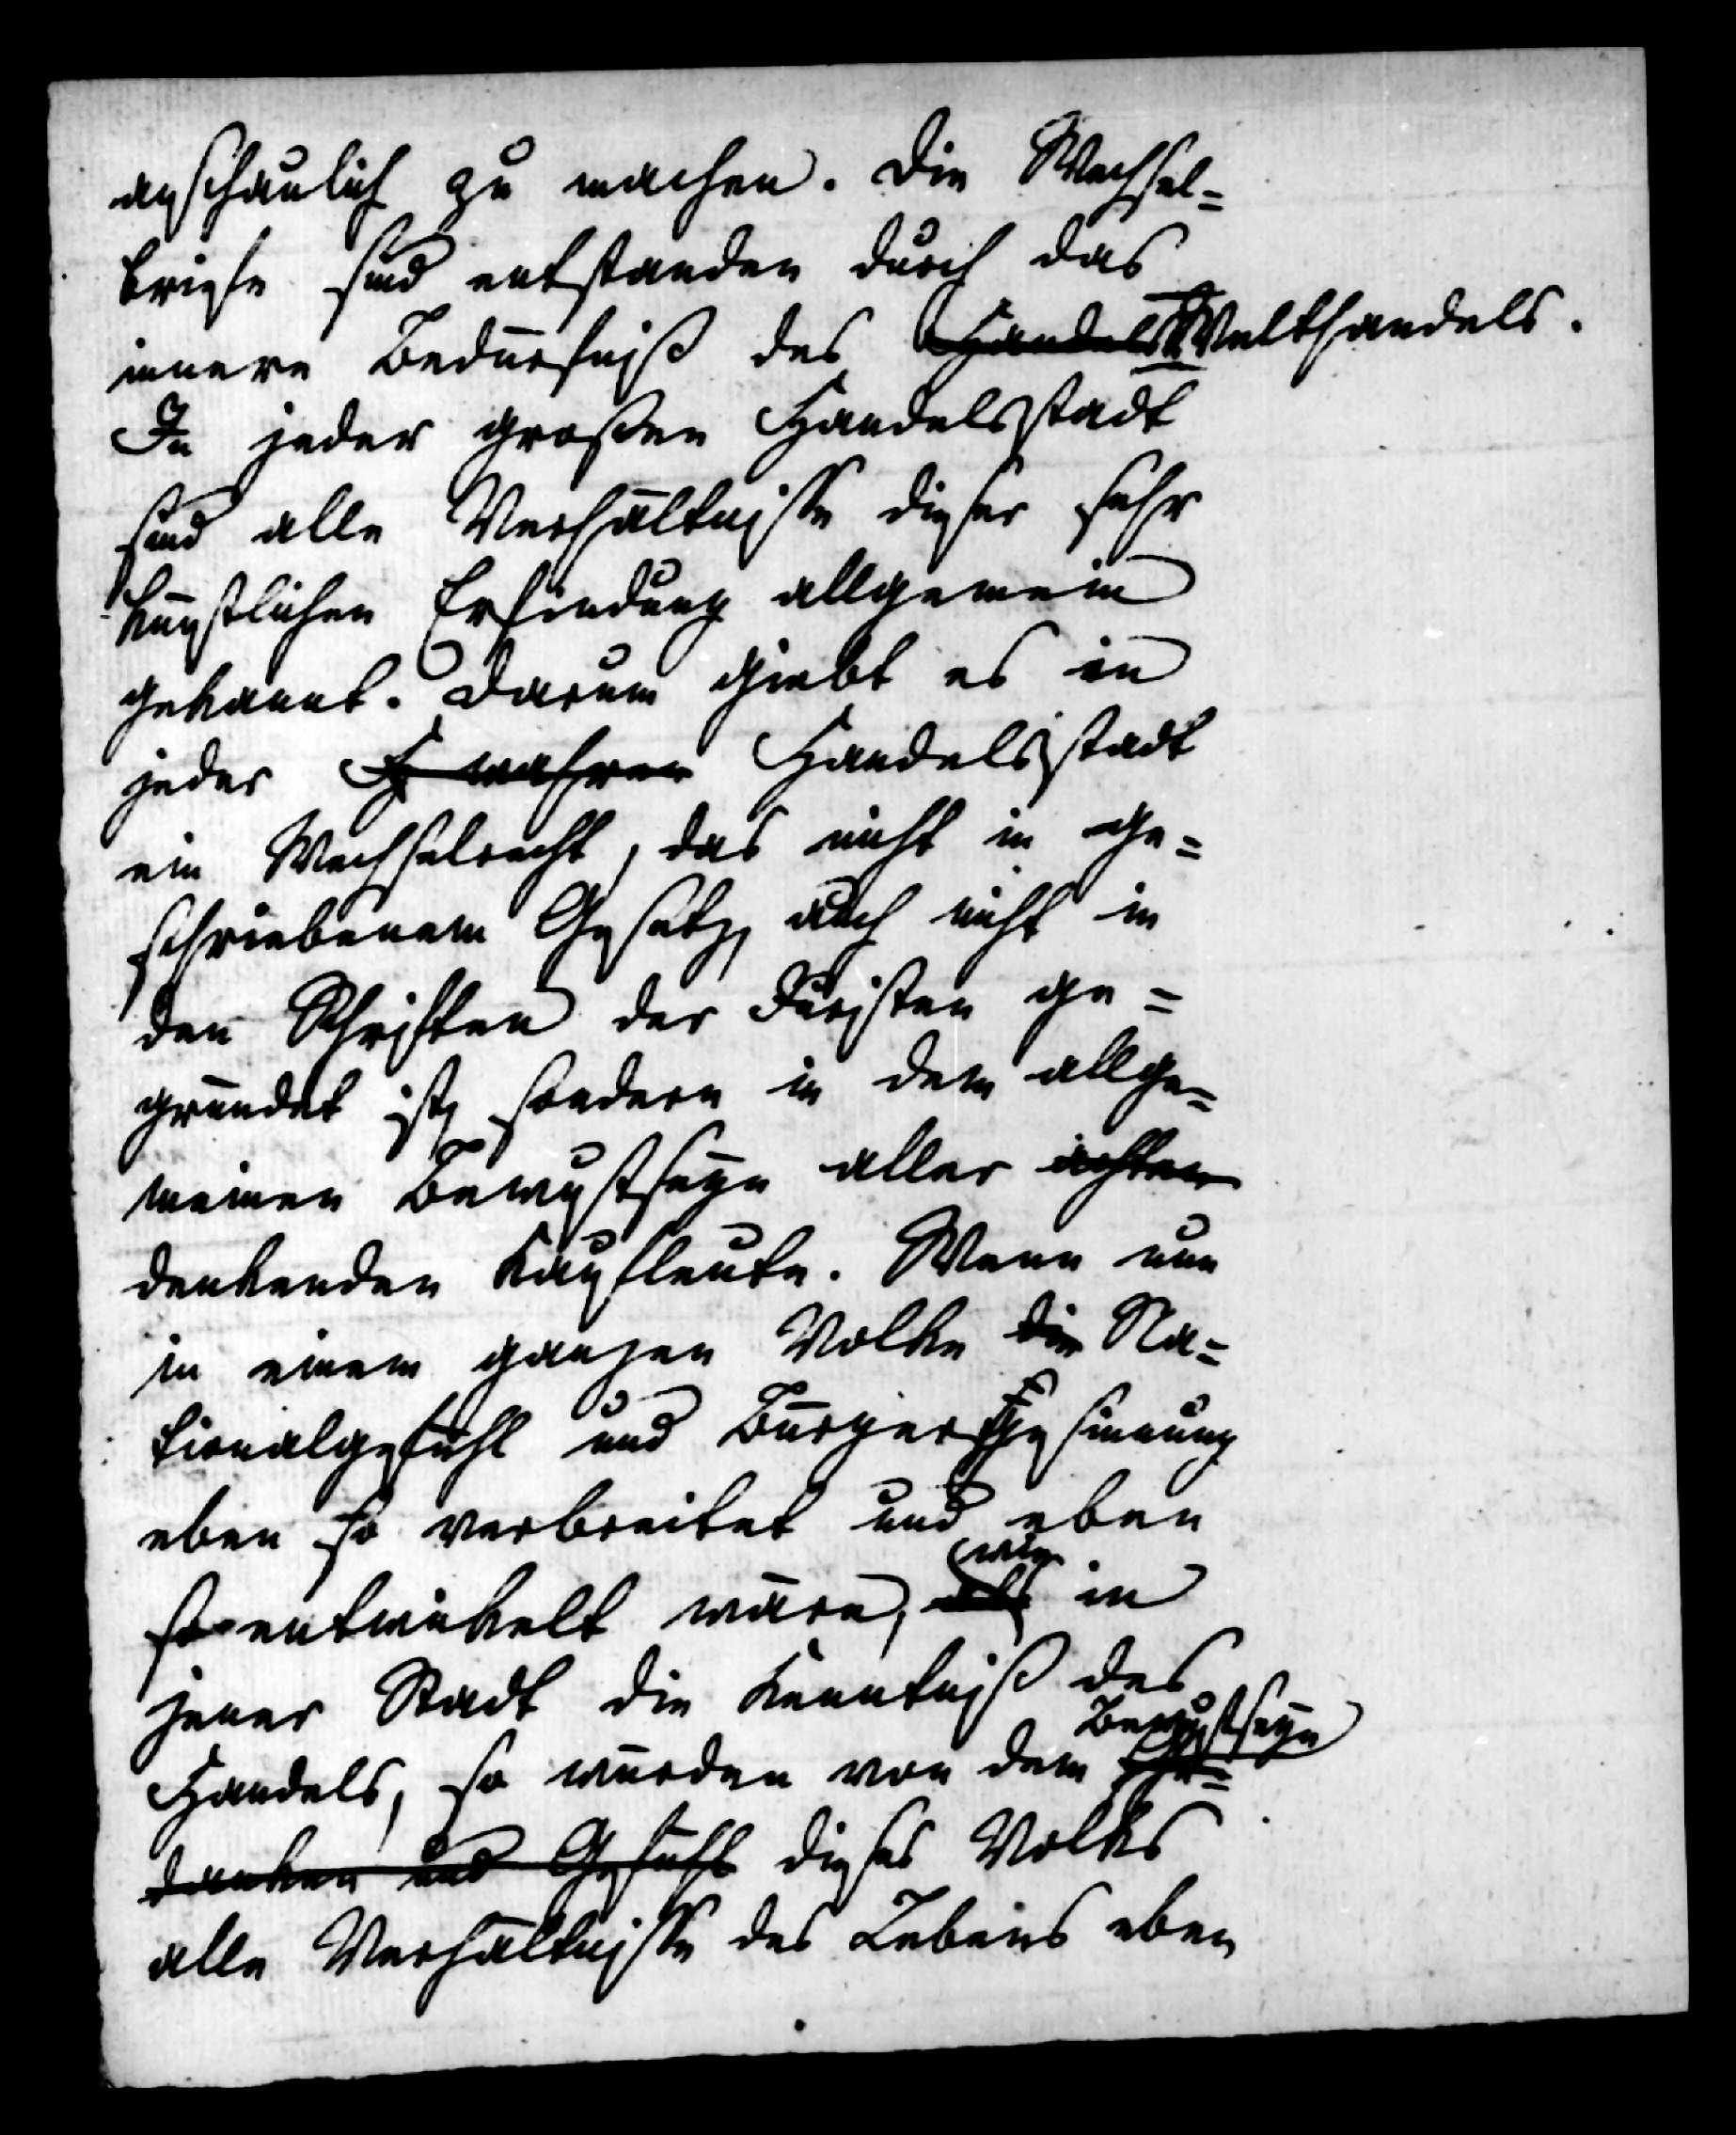 anschaulich zu machen. Die Wechsel=
briefe sind entstanden durch das
innere Bedürfniß des Handels Welthandels.
In jeder großen Handelsstadt
sind alle Verhältnisse dieser sehr
künstlichen Erfindung allgemein
gekannt. Darum giebt es in
jeder wahren Handelsstadt
ein Wechselrecht, das nicht in ge=
schriebenem Gesetz, auch nicht in
den Schriften der Juristen ge=
gründet ist, sondern in dem allge=
meinen Bewustseyn aller ächten
denkenden Kaufleute. Wenn nun
in einem ganzen Volke die Na=
tionalgefühl und Bürger Gesinnung
eben so verbreitet und eben
wie
so entwikelt wäre, als in
jener Stadt die Kenntniß des
Bewustseyn
Handels, so würden von dem Ge=
danken und Gefühl dieses Volks
alle Verhältnisse des Lebens eben